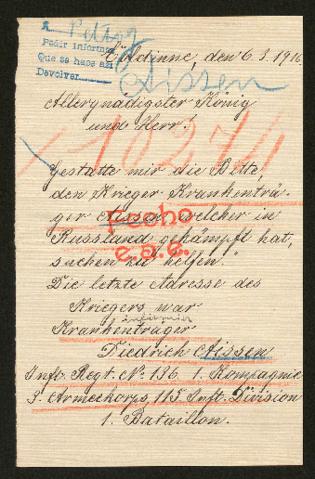 A Petroz
Pedir informes
Que se hace asi
Devolver
Aissen
Cödinne, den 6.3.1916.
Allergnädigster König
und Herr!
10274
Gestatte mir die Bitte,
den Krieger Krankenträ-
ger Aissen, welcher in
Russland gekämpft hat,
suchen zu helfen!
Fecho
e.a.g.
Die letzte Adresse des
Kriegers war
Krankenträger
Diedrich Aissen
Inft. Regt. No 136 1. Kompagnie
3. Armeekorps, 113 Inft. Division
1. Bataillon.